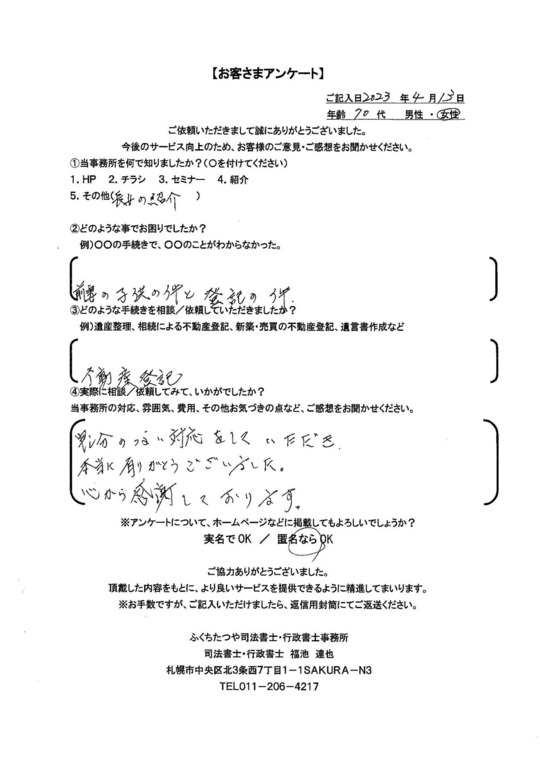 【お客さまアンケート】
ご記入日2023 年 4 月 13日
年齢 70 代 男性 ・ 女性
ご依頼いただきまして誠にありがとうございました。
今後のサービス向上のため、お客様のご意見・ご感想をお聞かせください。
①当事務所を何で知りましたか？(〇を付けてください)
1. HP 2. チラシ 3. セミナー 4. 紹介
5. その他(長女の紹介 )
②どのような事でお困りでしたか？
例)〇〇の手続きで、〇〇のことがわからなかった。
前妻の子供の件と登記の件.
③どのような手続きを相談／依頼していただきましたか？
例)遺産整理、相続による不動産登記、新築・売買の不動産登記、遺言書作成など
不動産登記
④実際に相談／依頼してみて、いかがでしたか？
当事務所の対応、雰囲気、費用、その他お気づきの点など、ご感想をお聞かせください。
申し分のない対応をしていただき.
本当に有りがとうございました。
心から感謝しております。
※アンケートについて、ホームページなどに掲載してもよろしいでしょうか？
実名でOK ／ 匿名ならOK
ご協力ありがとうございました。
頂戴した内容をもとに、より良いサービスを提供できるように精進してまいります。
※お手数ですが、ご記入いただけましたら、返信用封筒にてご返送ください。
ふくちたつや司法書士・行政書士事務所
司法書士・行政書士 福池 達也
札幌市中央区北3条西7丁目1－1SAKURA－N3
TEL011－206－4217